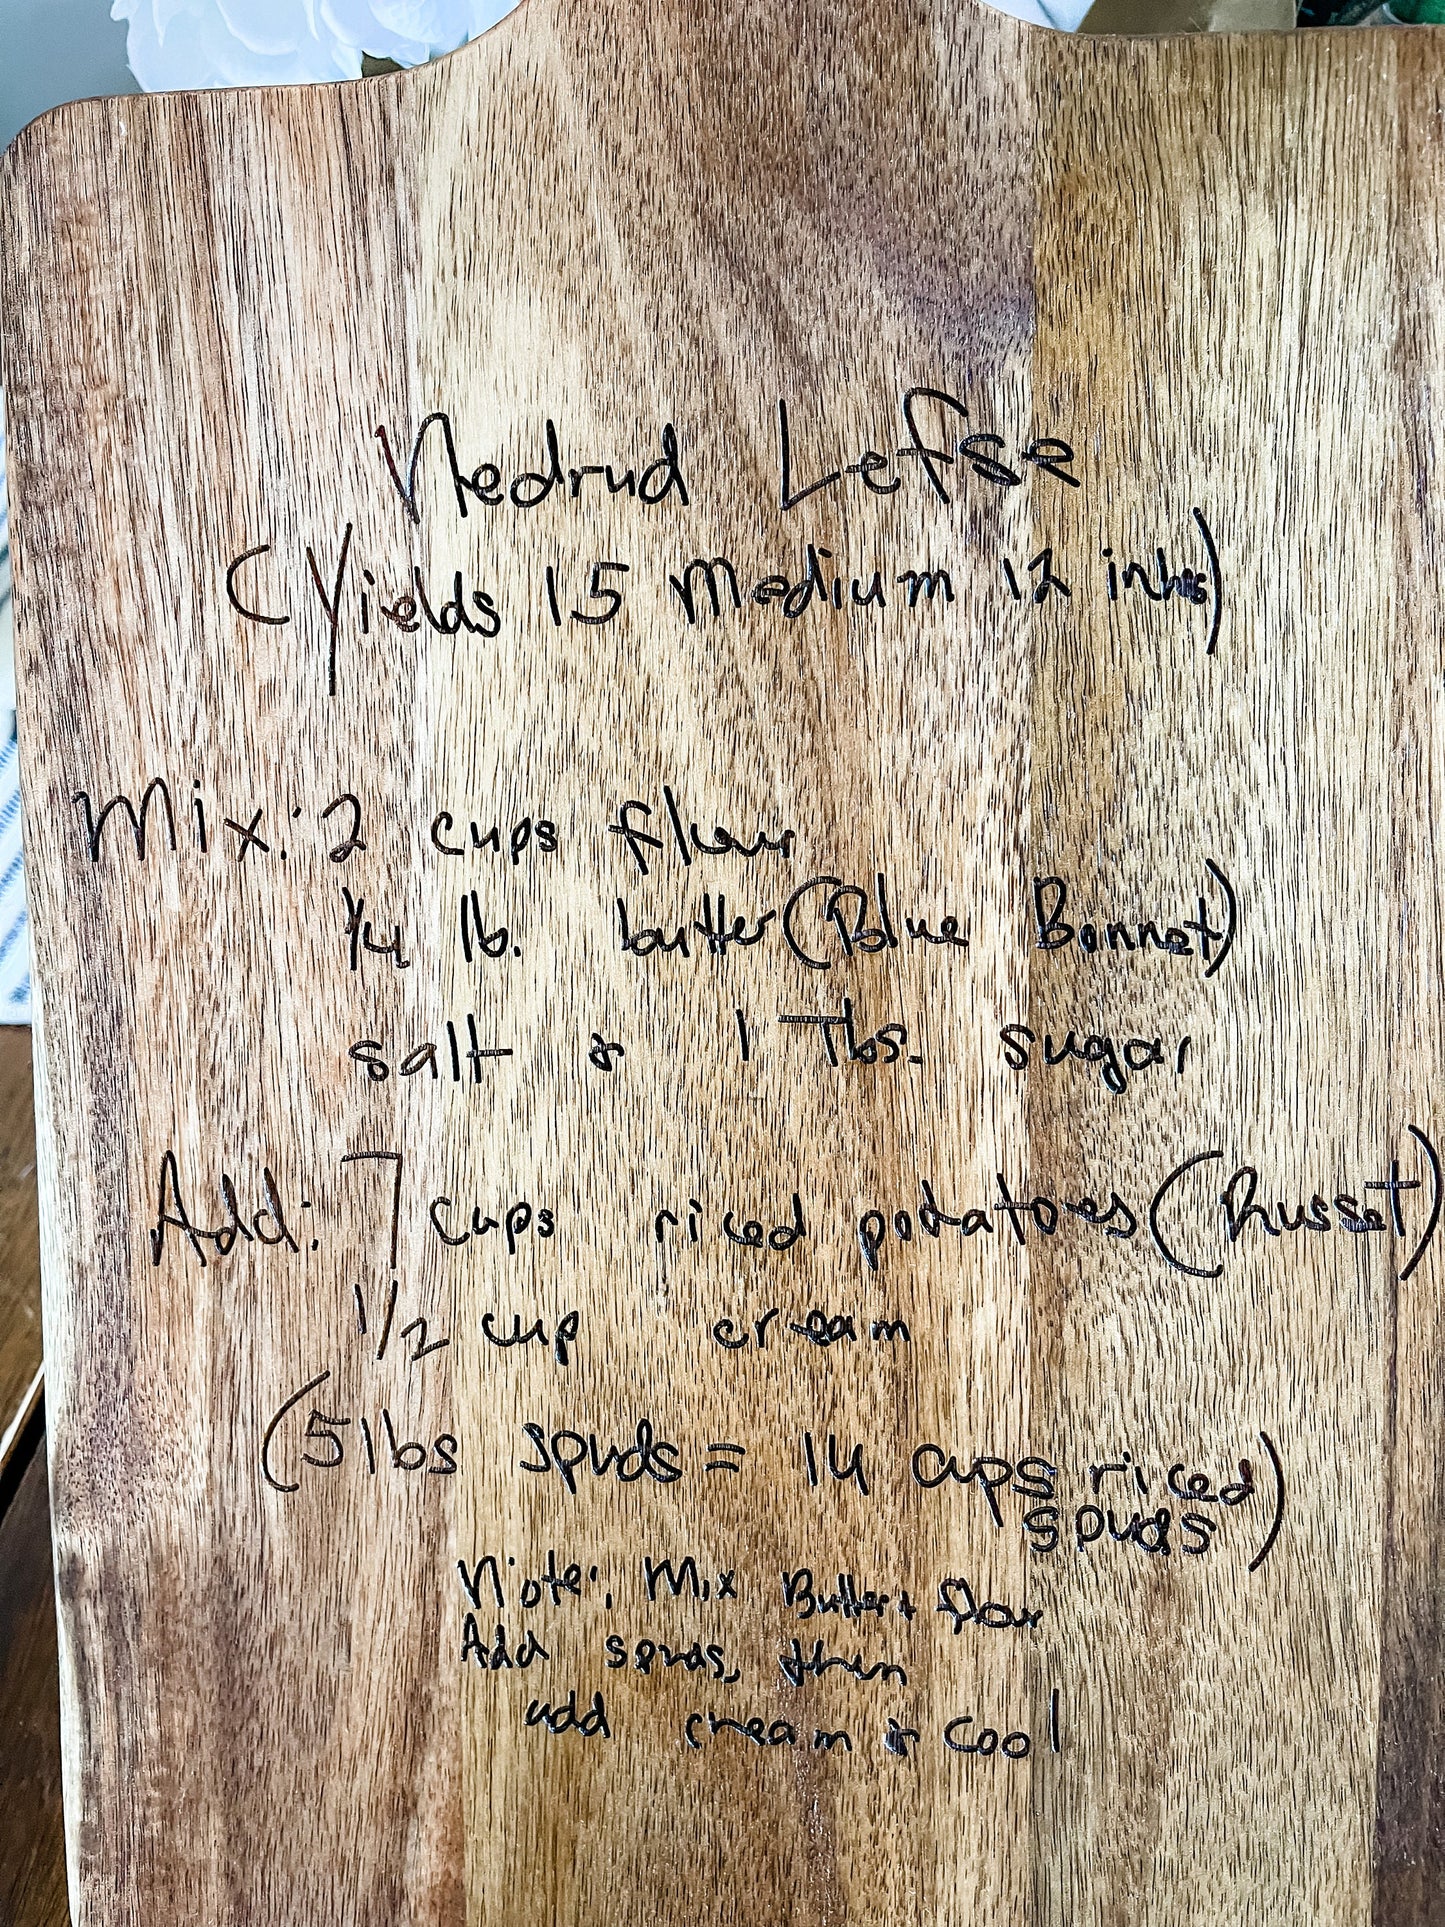 Nedrud Lefse
(Yields 15 Medium 12 inches)
Mix: 2 cups flour
1/4 lb. butter (Blue Bonnet)
salt & 1 Tbs. sugar
Add: 7 cups riced potatoes (Russet)
1/2 cup cream
(5 lbs spuds = 14 cups riced
spuds)
Note: Mix Butter + flour
Add spuds, then
add cream & cool